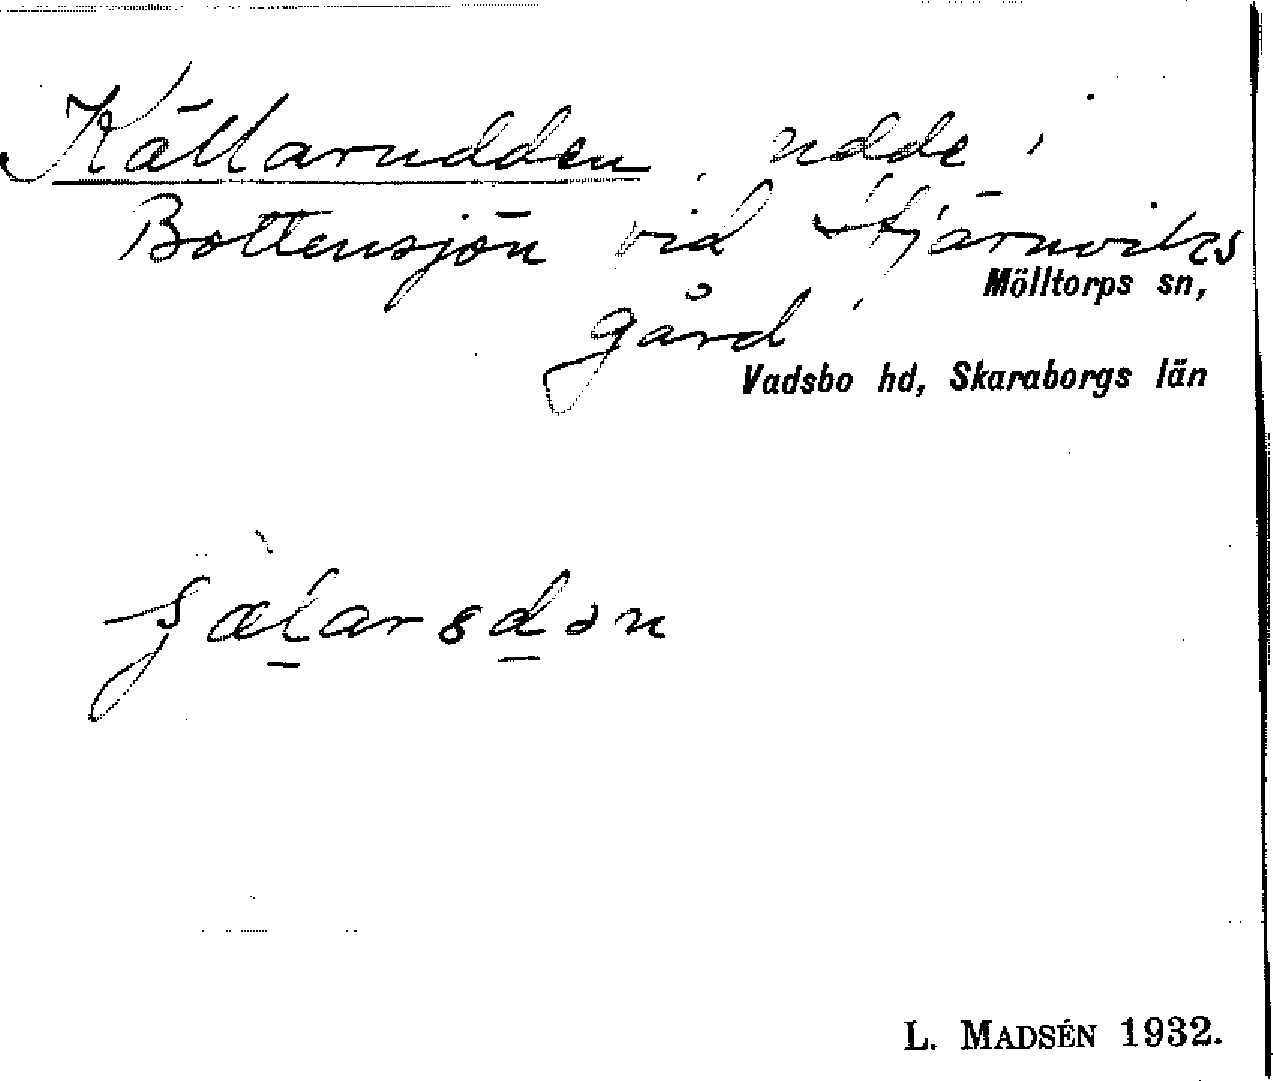 Källarudden, udde i
Bottensjön vid Stjärnviks
Mölltorps sn,
gård
Vadsbo hd, Skaraborgs län
L. MADSÉN 1932.